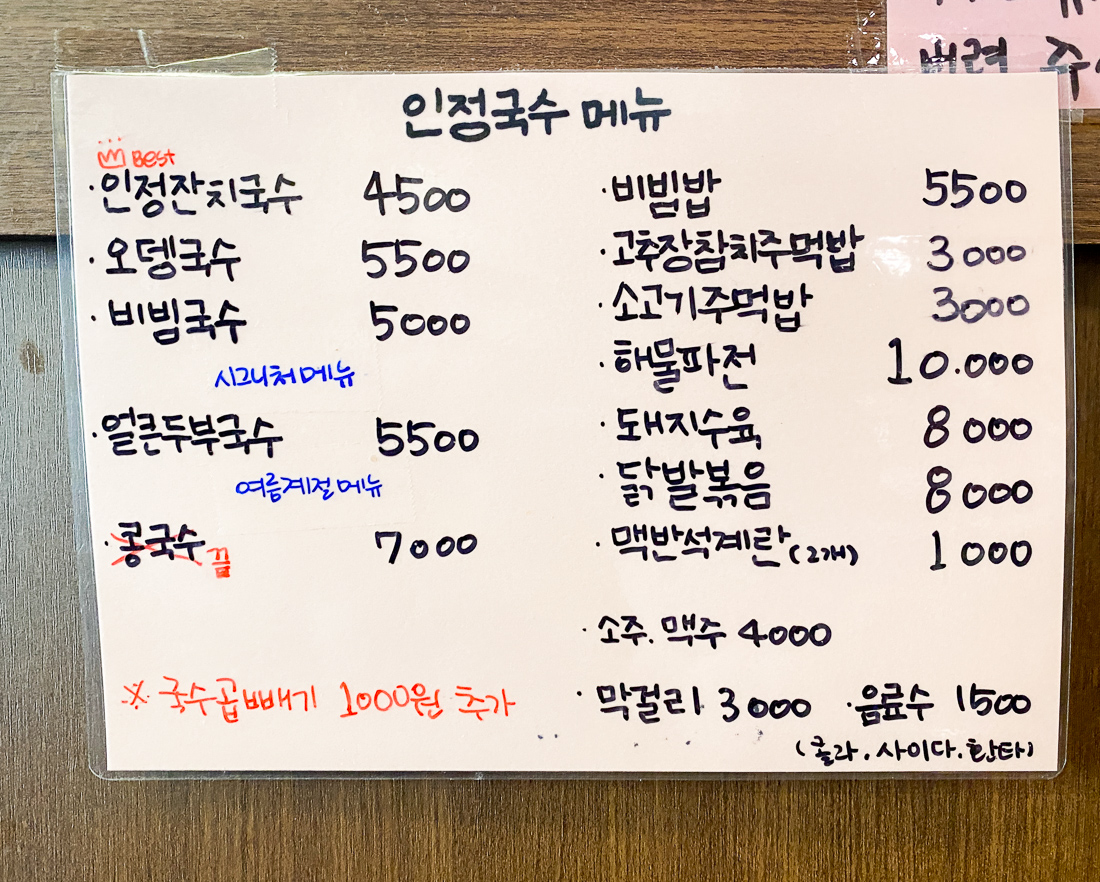 버려 주
인정국수 메뉴
Best
·인정잔치국수 4500
·오뎅국수 5500
·비빔국수 5000
시그니처메뉴
·얼큰두부국수 5500
여름계절메뉴
·콩국수 끝 7000
※ 국수곱빼기 1000원 추가
·비빔밥 5500
·고추장참치주먹밥 3000
·소고기주먹밥 3000
·해물파전 10.000
·돼지수육 8000
·닭발볶음 8000
·맥반석계란(2개) 1000
·소주. 맥주 4000
·막걸리 3000 ·음료수 1500
(콜라. 사이다. 환타)